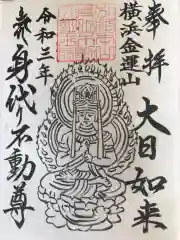 奉拝
大日如来
横浜金運山
令和三年
赤身代り不動尊